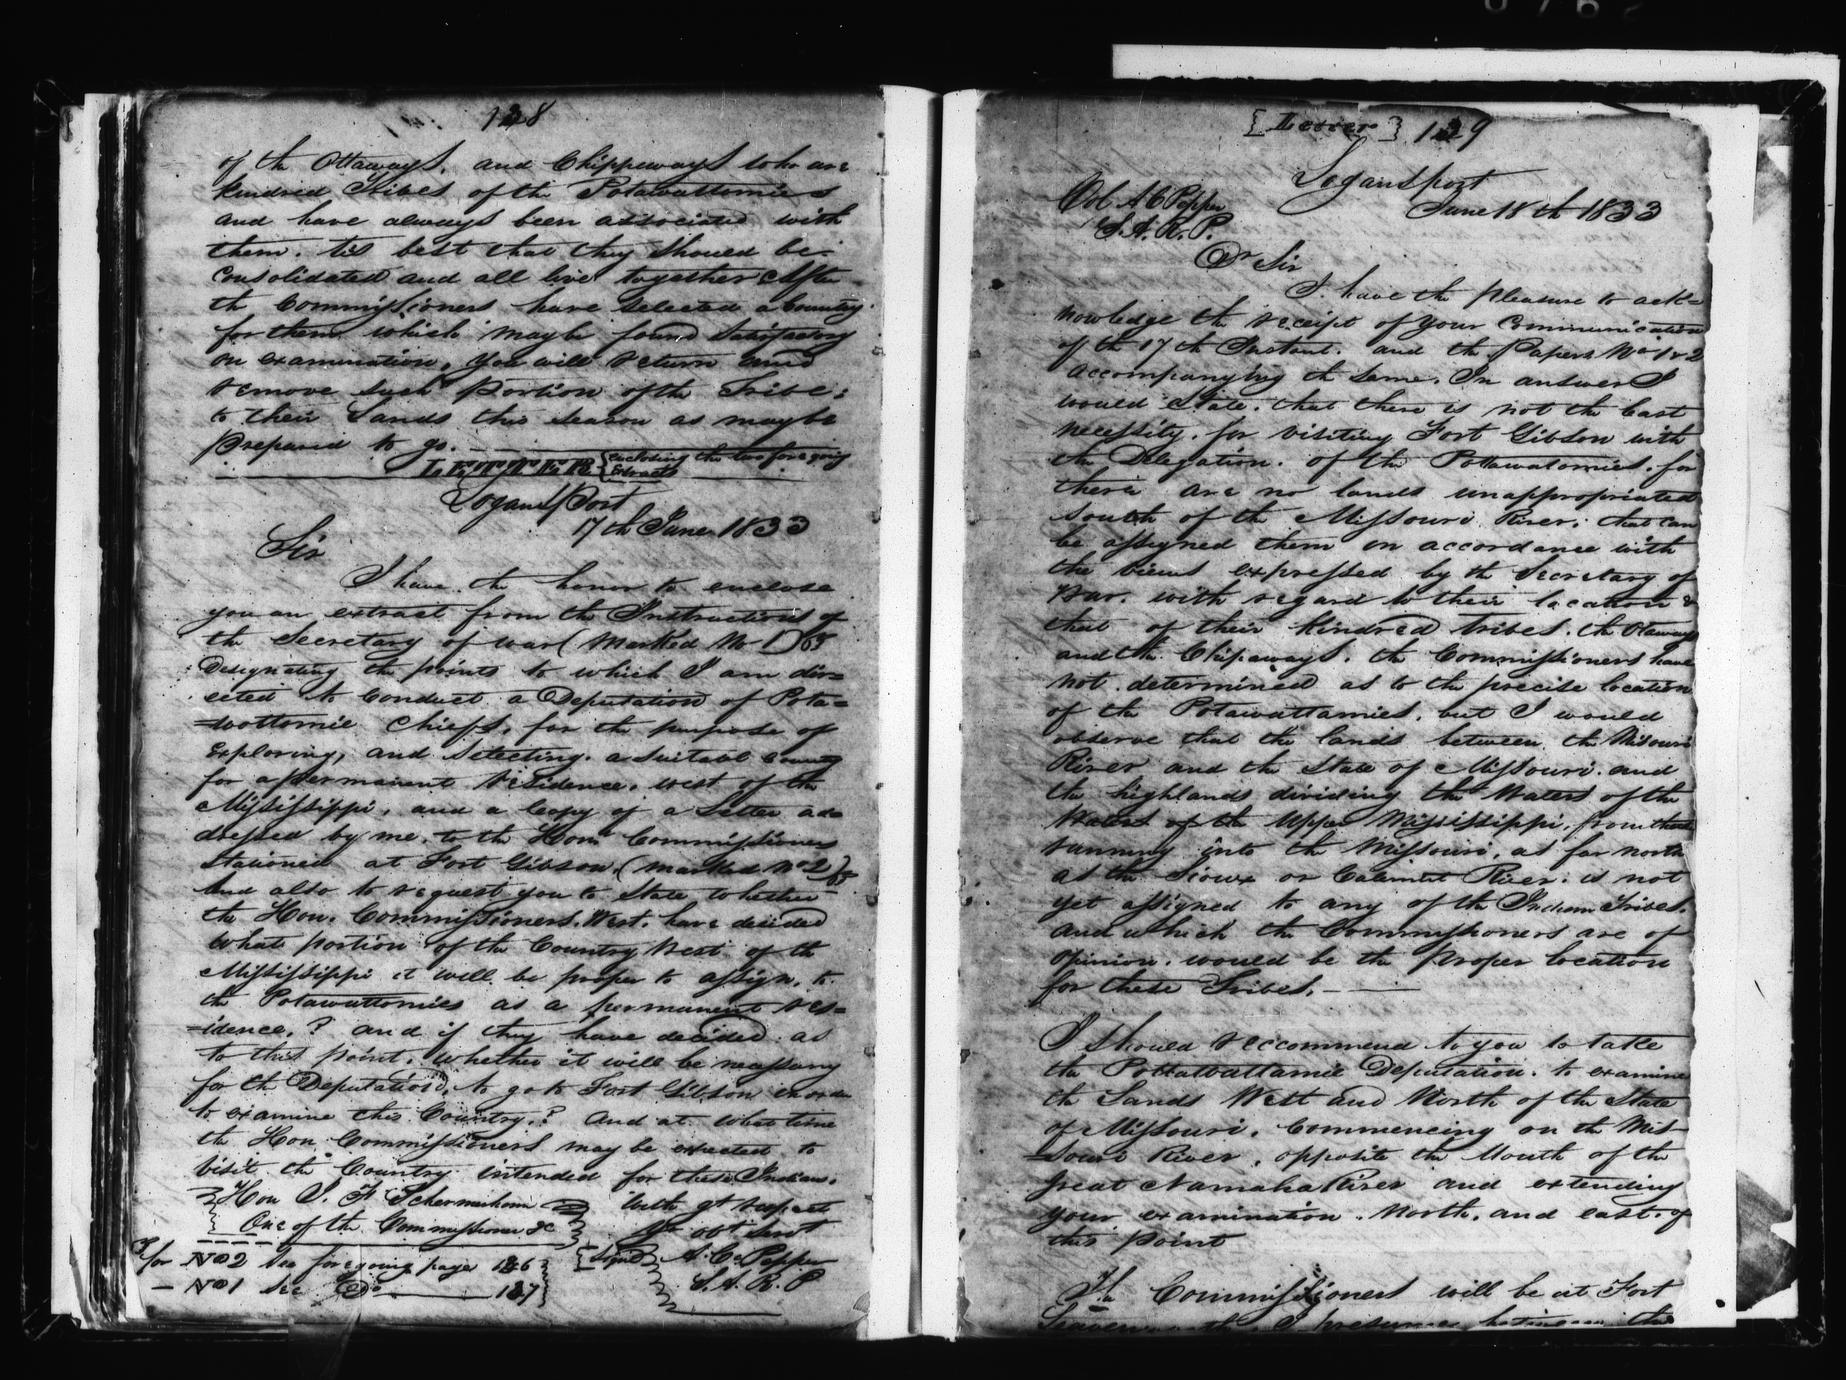 128
of the Ottaways, and Chippeways who are
kindred Tribes of the Potawattomies
and have always been associated with
them. tis best that they should be
Consolidated and all live together After
the Commissioners have selected a Country
for them which may be found satisfactory
on examination, you will return and
remove such portion of the Tribe,
to their Lands this Season as may be
prepared to go.
LETTER {enclosing the two foregoing
Extracts
Logans Port
17th June 1833
Sir
I have the honor to enclose
you an extract from the Instructions of
the Secretary of War (Marked No 1)
Designating the points to which I am dir=
ected to Conduct a Deputation of Pota=
=wottomie Chiefs, for the purpose of
Exploring, and Selecting. a Suitabl County
for a permanent residence, west of the
Mississippi, and a Copy of a Letter ad=
dressed by me, to the Honl Commissioners
stationed at Fort Gibson, (marked No 2)
And also to request you to State whether
the Hon. Commissioners. West. have decided
what portion of the Country West of the
Mississippi it will be proper to assign. to
the Potawattomies as a permanent res=
=idence,? and if they have decided as
to this point, whether it will be necessary
for the Deputation, to go to Fort Gibson in order
to examine this Country,? And at what time
the Hon Commissioners may be expected to
visit the Country intended for these Indians.
Hon J. F Schermerhorn
One of the Commissioners &c
with gt respect
Yr obt Servt
[Signed] A. C. Pepper
S. A. R. P
for No 2 See foregoing page 126
— No 1 See Do 127
[Letter] 129
Logansport
June 18th 1833
Col A C Pepper
S. A. R. P.
Dr Sir
I have the pleasure to ack=
nowledge the receipt of your Communication
of the 17th Instant. and the Papers No 1 & 2
accompanying the same. In answer I
would State. that there is not the least
necessity, for visiting Fort Gibson with
the Delegation. of the Pottawatomies, for
there are no lands unappropriated
South of the Missouri River, that can
be assigned them in accordance with
the views expressed by the Secretary of
War. with regard to their location &
that of their kindred tribes. the Otaways
and the Chipaways. the Commissioners have
not determined as to the precise location
of the Potawattamies, but I would
observe that the lands between the Misouri
River and the State of Missouri. and
the highlands dividing the Waters of the
Waters of the Upper Mississippi, from those
running into the Missouri, as far north
as the Sioux or Calumet River. is not
yet assigned to any of the Indian Tribes.
and which the Commissioners are of
opinion. would be the proper location
for these Tribes. — —
I should reccommend to you to take
the Pottawattamie Deputation. to examine
the Lands West and North of the State
of Missouri. Commencing on the Mis-
=souri River, opposite the Mouth of the
great Namaha River and extending
your examination. North. and east. of
this point
The Commissioners will be at Fort
Leavenworth, I presume between the